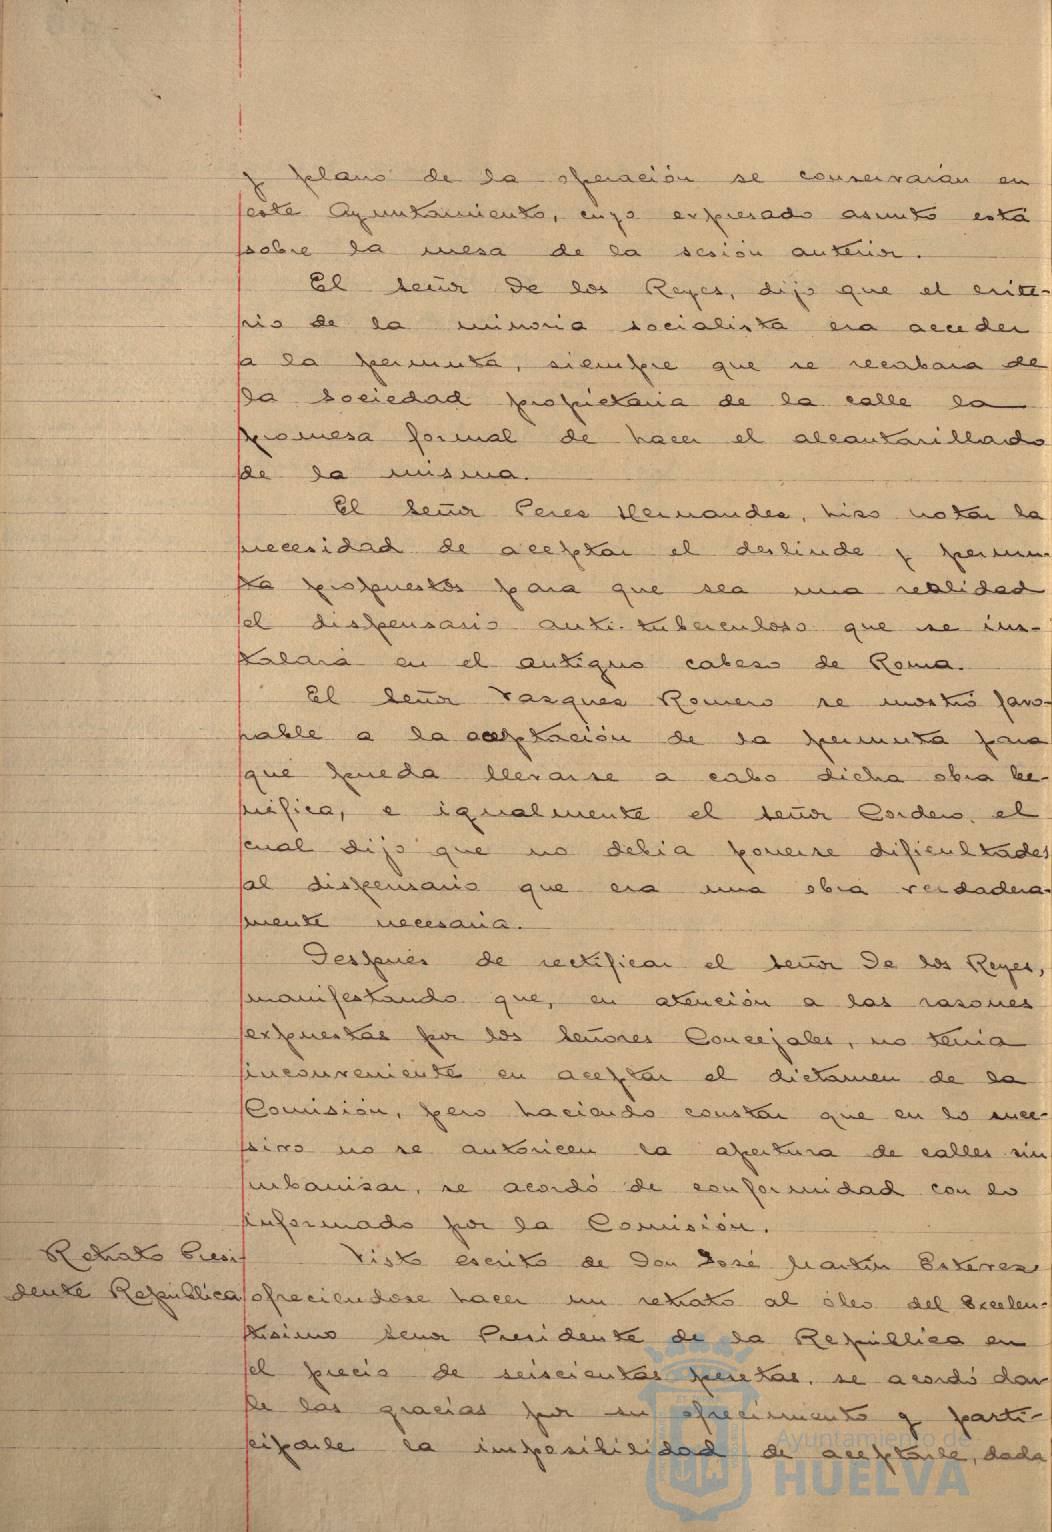 y plano de la operación se conservarán en
este Ayuntamiento, cuyo expresado asunto está
sobre la mesa de la sesión anterior.
El señor De los Reyes, dijo que el crite-
rio de la minoria socialista era acceder
a la permuta, siempre que se recabara de
la Sociedad propietaria de la calle la
promesa formal de hacer el alcantarillado
de la misma.
El Señor Peres Hernandes, hiso notar la
necesidad de aceptar el deslinde y permu-
ta propuestos para que sea una realidad
el dispensario anti-tuberculoso que se ins-
talará en el antiguo cabeso de Roma.
El Señor Vasques Romero se mostró favo-
rable a la aceptación de la permuta para
que pueda llevarse a cabo dicha obra be-
néfica, e igualmente el señor Cordero, el
cual dijo que no debia ponerse dificultades
al dispensario que era una obra verdadera-
mente necesaria.
Después de rectificar el señor De los Reyes,
manifestando que, en atención a las rasones
expuestas por los Señores Concejales, no tenia
inconveniente en aceptar el dictamen de la
Comisión, pero haciendo constar que en lo suce-
sivo no se autoricen la apertura de calles sin
urbanisar, se acordó de conformidad con lo
informado por la Comisión.
Retrato Presi-
dente República
Visto escrito de Don José Martín Estevez
ofreciendose hacer un retrato al óleo del Excelen-
tisimo Señor Presidente de la República en
el precio de seiscientas pesetas, se acordó dar-
le las gracias por su ofrecimiento y parti-
ciparle la imposibilidad de aceptarle, dada
Ayuntamiento de
HUELVA